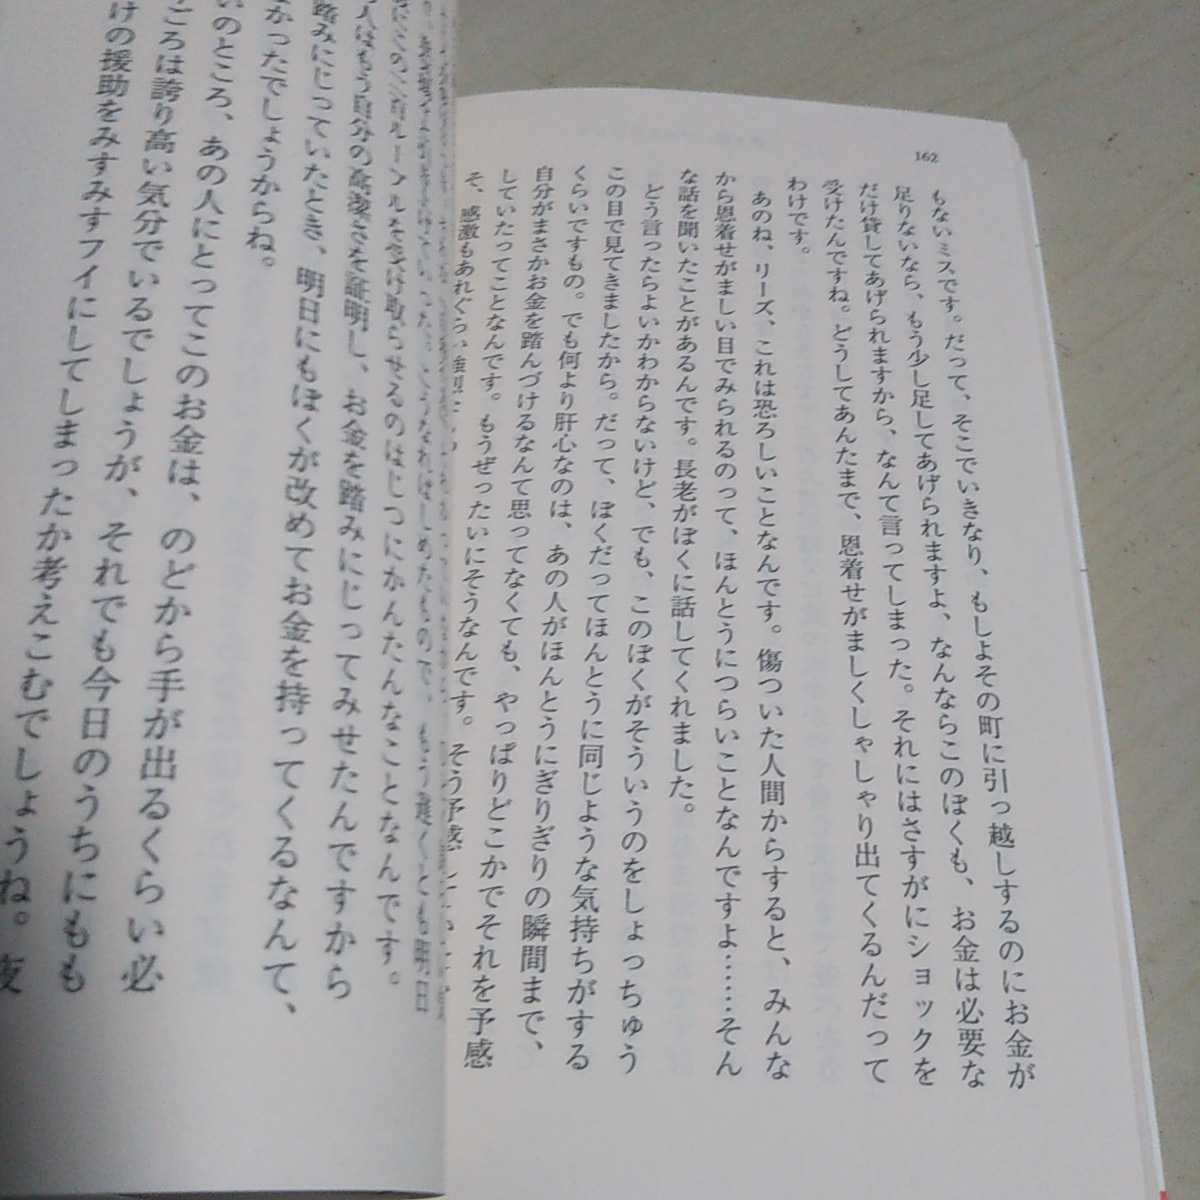 162
もないミスです。だって、そこでいきなり、もしよその町に引っ越しするのにお金が
足りないなら、もう少し足してあげられますよ、なんならこのぼくも、お金は必要な
だけ貸してあげられますから、なんて言ってしまった。それにはさすがにショックを
受けたんですね。どうしてあんたまで、恩着せがましくしゃしゃり出てくるんだって
わけです。
あのね、リーズ、これは恐ろしいことなんです。傷ついた人間からすると、みんな
から恩着せがましい目でみられるのって、ほんとうにつらいことなんですよ……そん
な話を聞いたことがあるんです。長老がぼくに話してくれました。
どう言ったらよいかわからないけど、でも、このぼくがそういうのをしょっちゅう
この目で見てきましたから。だって、ぼくだってほんとうに同じような気持ちがする
くらいですもの。でも何より肝心なのは、あの人がほんとうにぎりぎりの瞬間まで、
自分がまさかお金を踏んづけるなんて思ってなくても、やっぱりどこかでそれを予感
していたってことなんです。もうぜったいにそうなんです。そう予感していた
そ、感激もあれぐらい強烈
るのはじつにかんたんなことなんです。
人はもう自分の高潔さを証明し、お金を踏みにじってみせたんですから
踏みにじっていたとき、明日にもぼくが改めてお金を持ってくるなんて、
かったでしょうからね。
いのところ、あの人にとってこのお金は、のどから手が出るくらい必
ごろは誇り高い気分でいるでしょうが、それでも今日のうちにも
けの援助をみすみすフイにしてしまったか考えこむでしょうね。夜